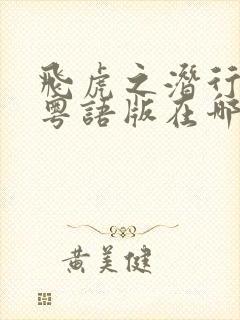 飛虎之潛行
粵語版在哪
黄美健